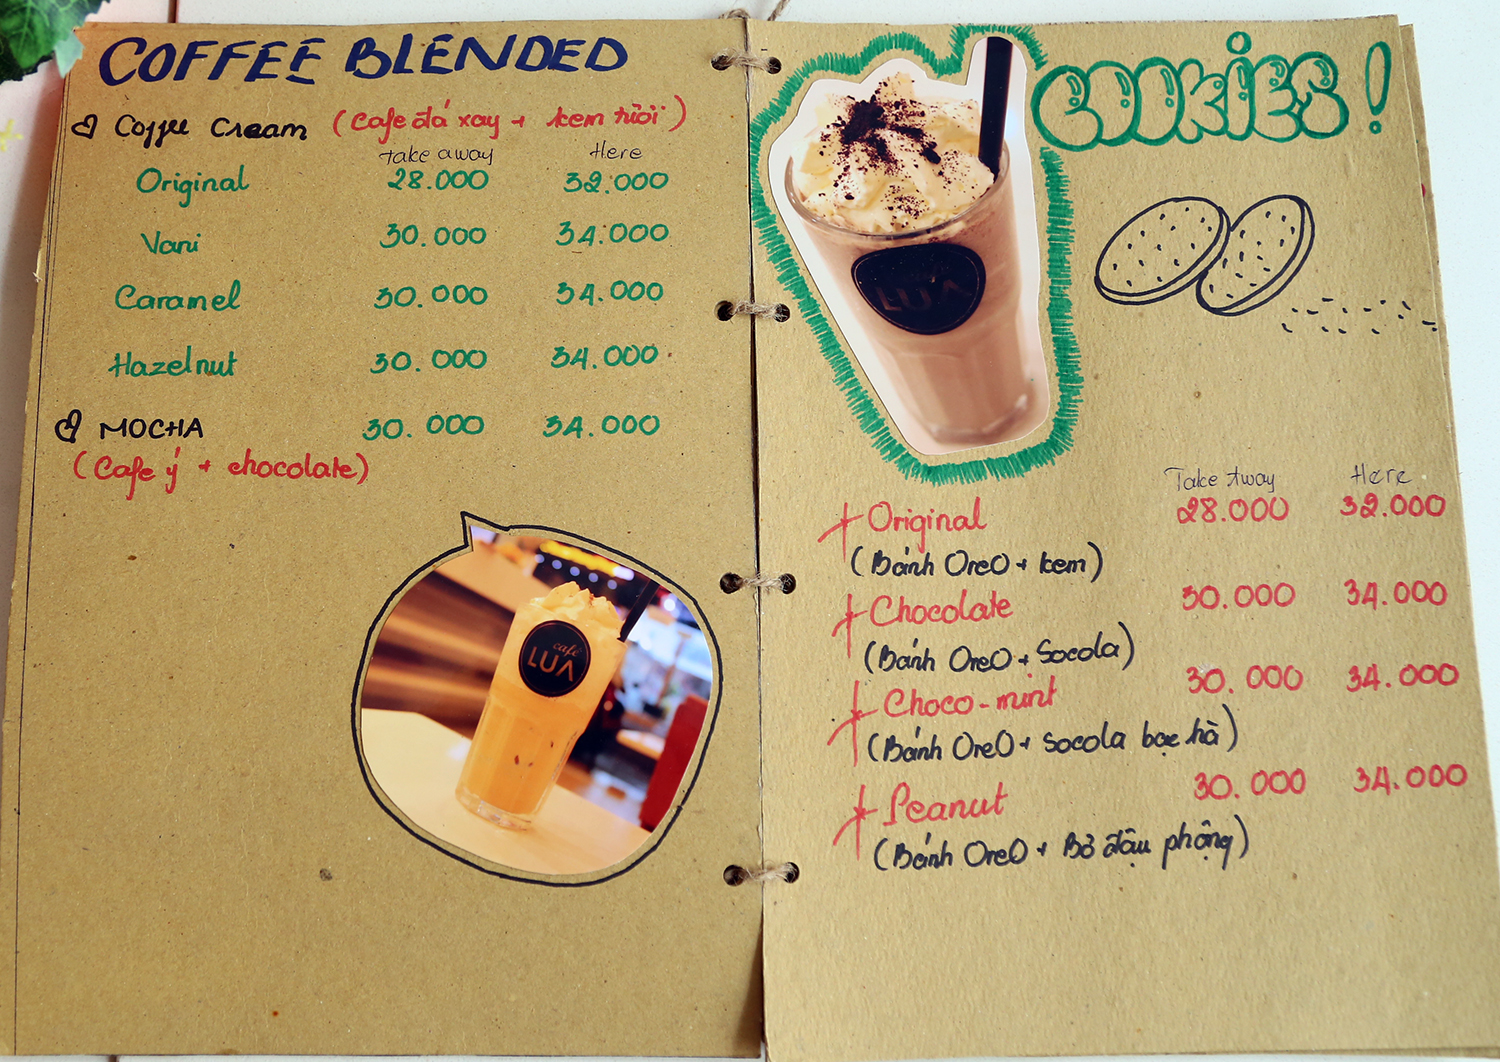 COFFEE BLENDED
Coffee Cream (Cafe đá xay + kem tươi)
Take away Here
Original 28.000 32.000
Vani 30.000 34.000
Caramel 30.000 34.000
Hazelnut 30.000 34.000
MOCHA 30.000 34.000
(Cafe ý + chocolate)
café
LUA
COOKIES!
LUA
Take Away Here
+ Original 28.000 32.000
(Bánh OreO + kem)
+ Chocolate 30.000 34.000
(Bánh OreO + Socola)
+ Choco-mint 30.000 34.000
(Bánh OreO + Socola bạc hà)
+ Peanut 30.000 34.000
(Bánh OreO + Bơ đậu phộng)